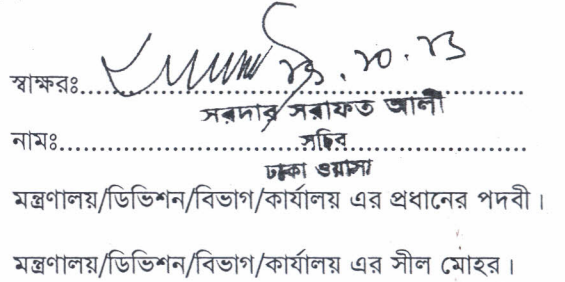 স্বাক্ষরঃ.......................................................
সরদার সরাফত আলী
নামঃ.......................................................
সচিব
ঢাকা ওয়াসা
মন্ত্রণালয়/ডিভিশন/বিভাগ/কার্যালয় এর প্রধানের পদবী।
মন্ত্রণালয়/ডিভিশন/বিভাগ/কার্যালয় এর সীল মোহর।